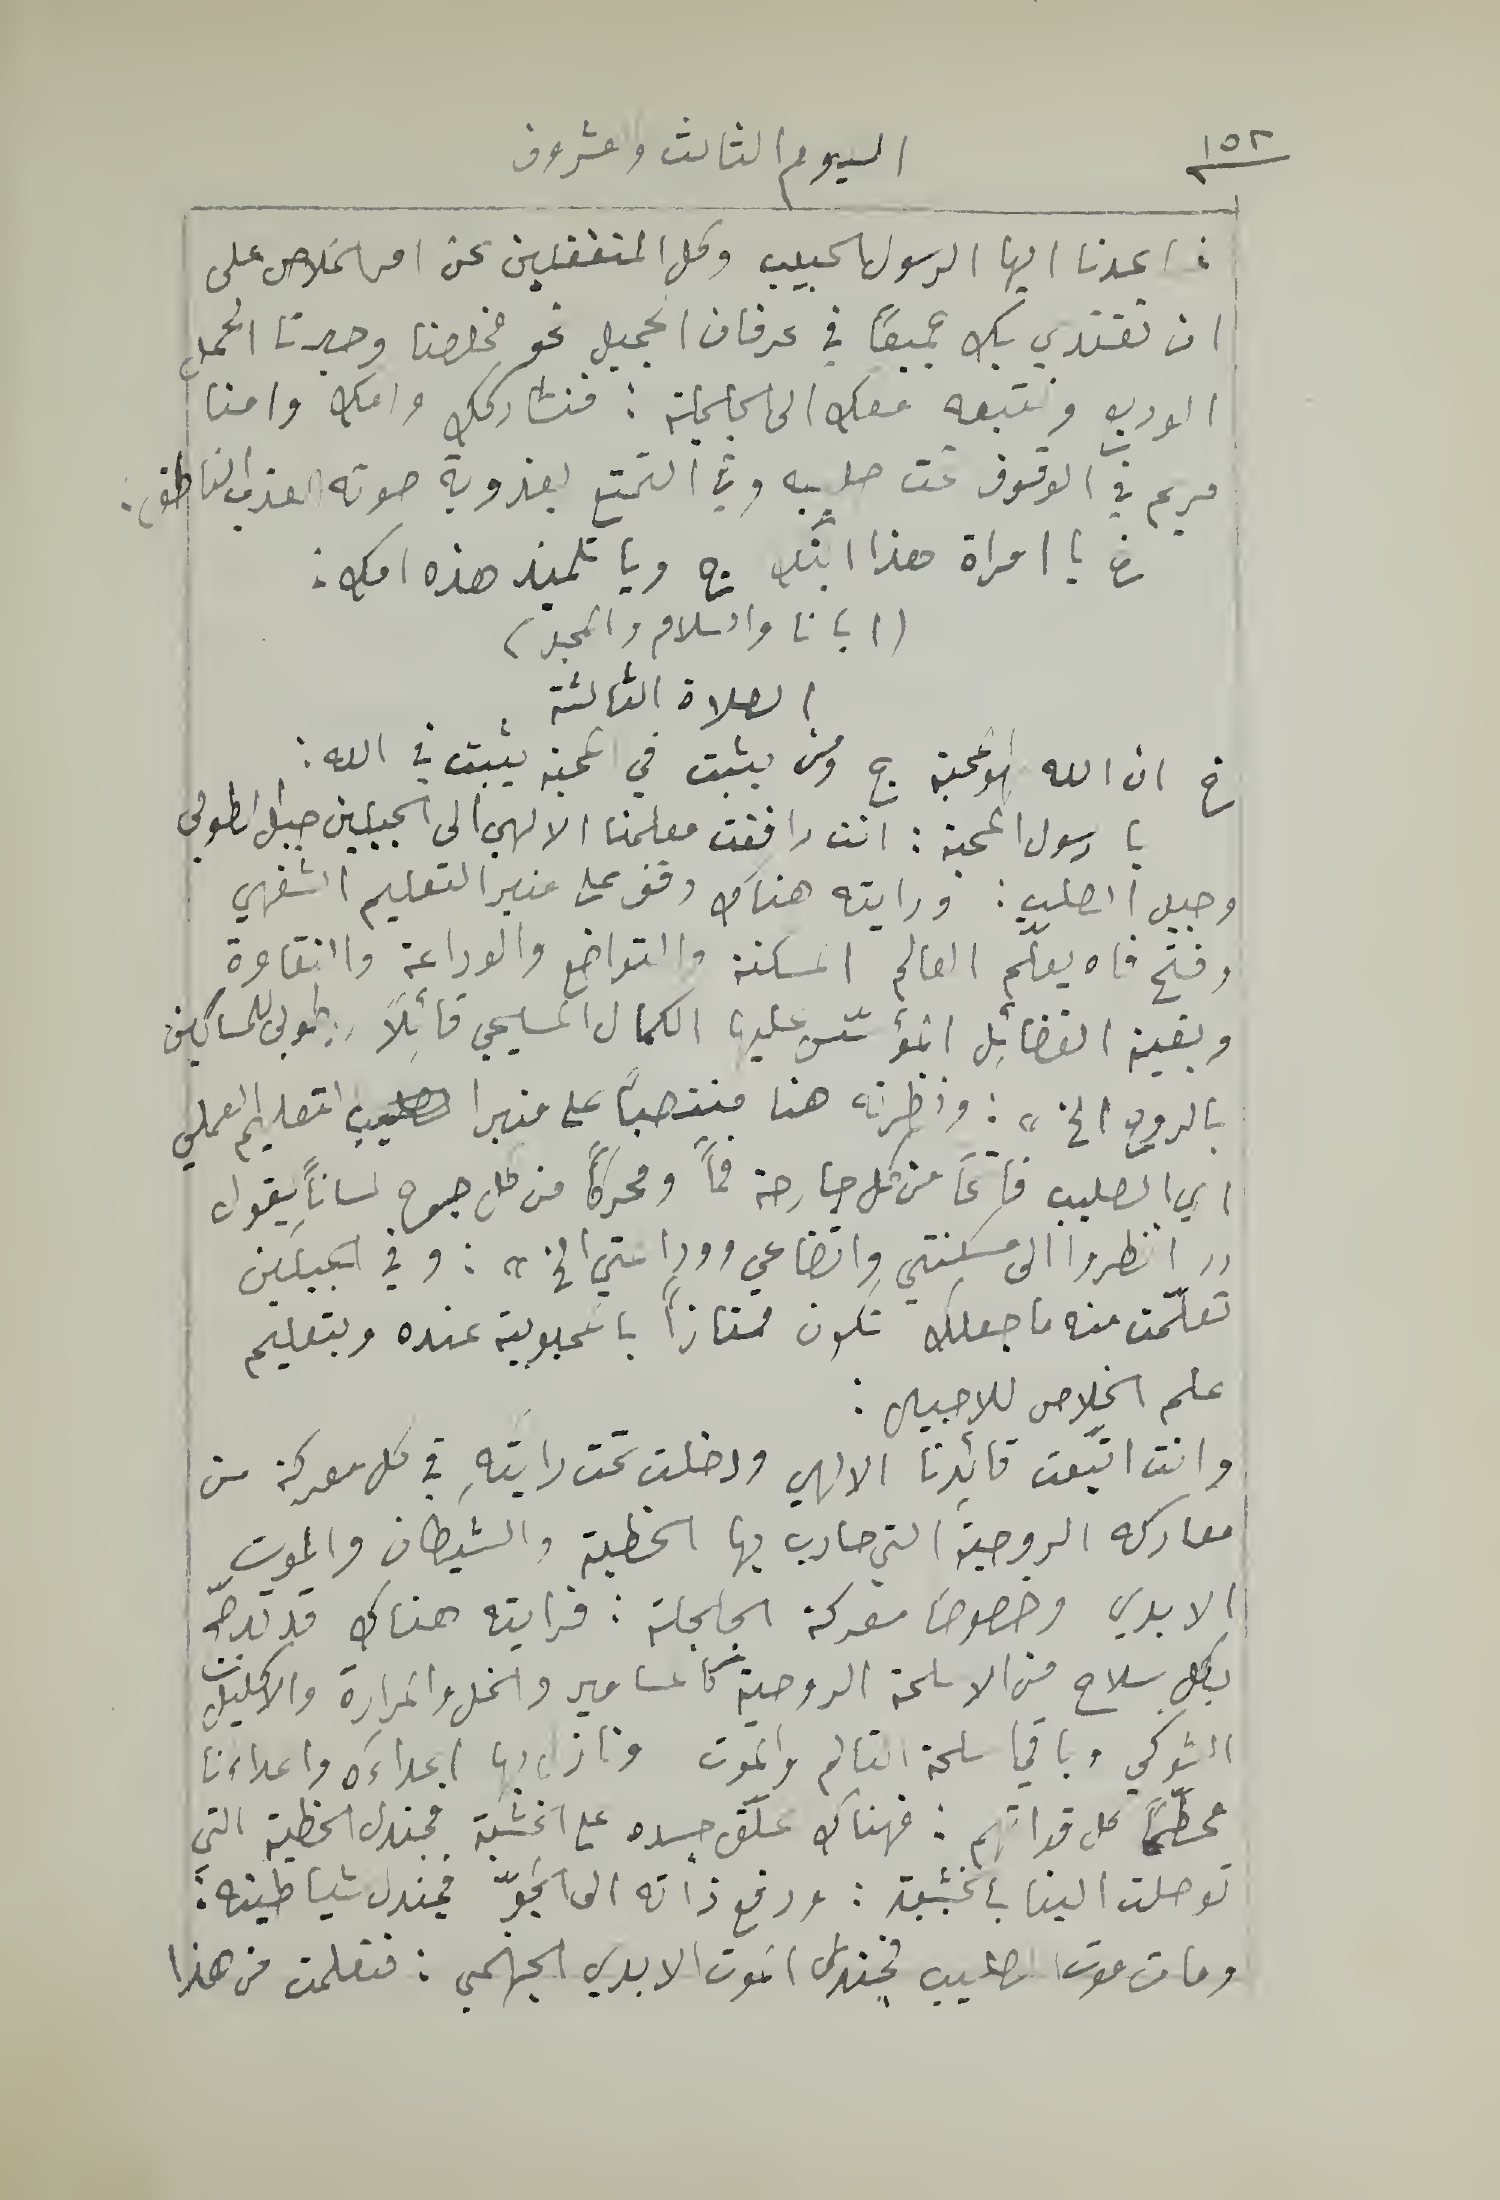 ١٥٢
اليوم الثالث وعشرون
: اعدنا ايها الرسول الحبيب وكل المتغفلين عن امر الخلاص على
ان نقتدي بك جميعًا في عرفان الجميل نحو مخلصنا وحبرنا الحمل
الوديع ونتبعه معك الى الجلجلة : فنشاركك وامك وامنا
مريم في الوقوف تحت صليبه وفي التمتع بعذوبة صوته العذب الناطق :
خ يا امراة هذا ابنك ج ويا تلميذ هذه امك :
( ابانا والسلام والمجد )
الصلاة الثالثة
خ ان الله هو المحبة ج ومن يثبت في المحبة يثبت في الله :
يا رسول المحبة : انت رافقت معلمنا الالهي الى الجبلين جبل الطوبى
وجبل الصلب : ورايته هناك وقف على منبر التعليم الشفهي
وفتح فاه يعلّم العالم المسكنة والتواضع والوداعة والنقاوة
وبقية الفضائل المؤسّس عليها الكمال المسيحي قائلاً ,, طوبى للمساكين
بالروح الخ ,, : ونظرته هنا منتصبًا على منبر التعليم العملي
اي الصليب فاتحًا من كل جارحة فمًا ومحركًا من كل جرح لسانًا يقول
,, انظروا الى مسكنتي واتضاعي ووداعتي الخ ,, : وفي الجبلين
تعلّمت منه ما جعلك تكون ممتازًا بالمحبوبية عنده وبتعليم
علم الخلاص للاجيال :
وانت اتبعت قائدنا الالهي ودخلت تحت رايتهِ في كل معركة من
معاركه الروحية التي حارب بها الخطية والشيطان والموت
الابدي وخصوصًا معركة الجلجلة : فرايته هناك قد تدرّع
بكل سلاح من الاسلحة الروحية كالمسامير والخل والمرارة والاكليل
الشوكي وباقي اسلحة التالم والموت ونازل بها اعداءَه واعداءنا
محطّمًا كل قواتهم : فهناك علّق جسده على الخشبة فجندل الخطية التي
توصلت الينا بالخشبة : ورفع ذاته الى الجوّ فجندل شياطينه :
ومات موت الصليب فجندل الموت الابدي الجهنمي : فتعلمت من هذا